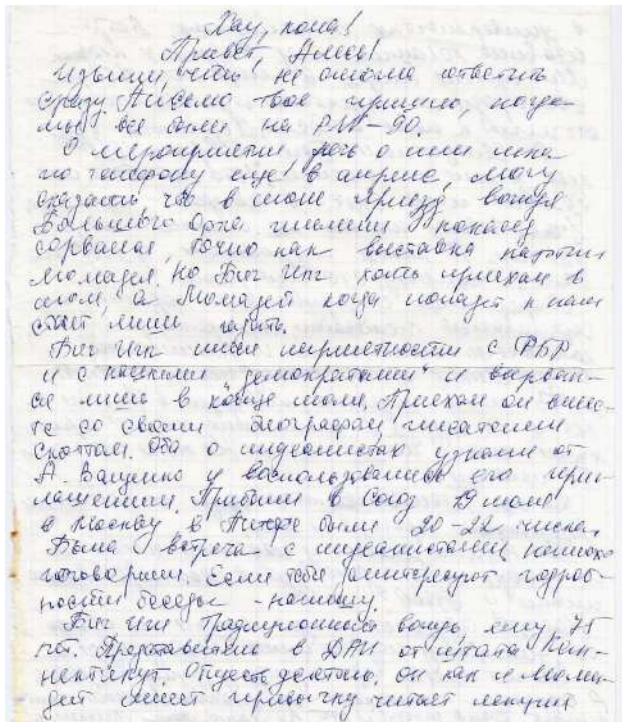 Хау, кола!
Привет, Алесь!
Извини, что не смогла ответить
сразу. Письмо твое пришло, когда
мы все были на РМ-90.
О мероприятии речь о нем шла
по телефону еще в апреле, могу
сказать, что в июне приезд вождя
Большого Орла
сорвался, точно как выставка картин
Момадея. Но Биг Игл хоть приехал в
июле, а Момадей когда попадет к нам
стоит лишь гадать.
Биг Игл имел неприятности с ФБР
и с нашими "демократами" и вырвал-
ся лишь в конце июля. Приехал он вмес-
те со своим биографом, писателем
Скоттом. Оба о индеанистах узнали от
А. Ващенко и воспользовались его приг-
лашением. Прибыли в Союз 19 июля
в Москву, в Питере были 20-22 числа.
Была встреча с индеанистами, немного
поговорили. Если тебя заинтересуют подроб-
ности беседы - напишу.
Биг Игл традиционный вождь, ему 75
лет. Представитель в ДАИ от штата Кон-
нектикут. Общест. деятель, он как и Мома-
дей имеет привычку читает лекции